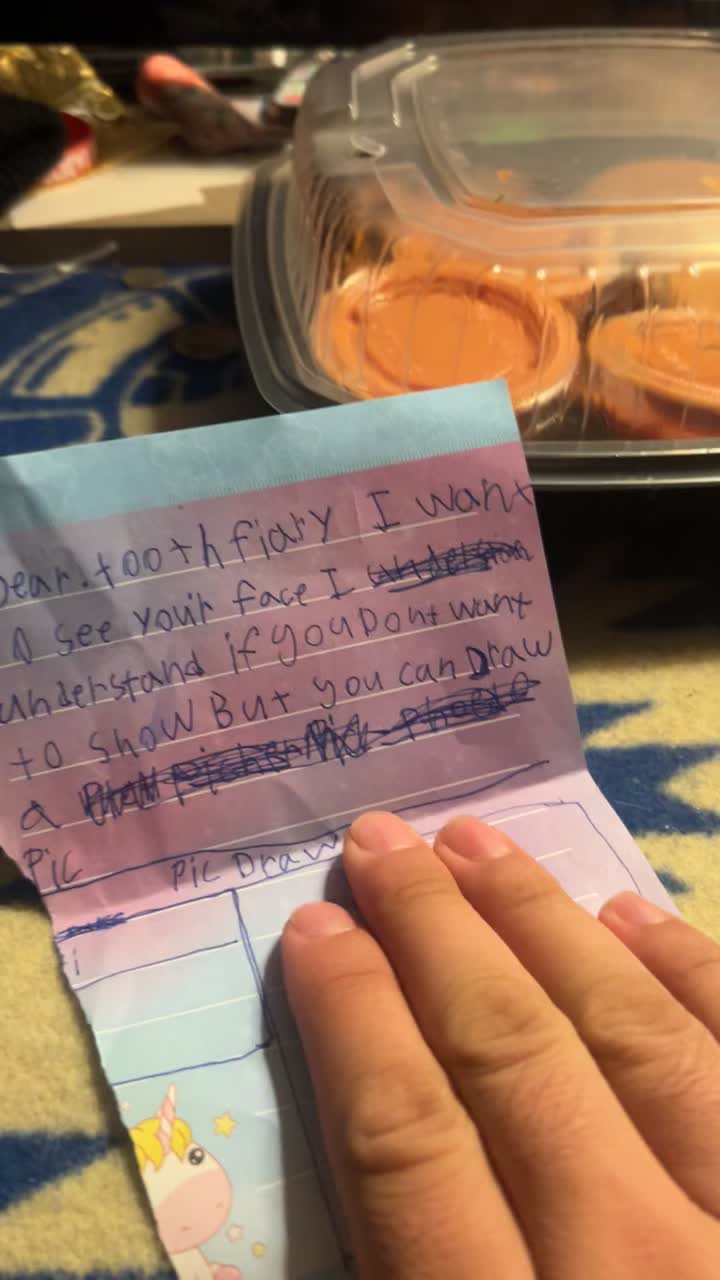 Dear.toothfiary I want
to see your face I
understand if you Dont want
to show But you can Draw
a
Pic Pic Draw
i